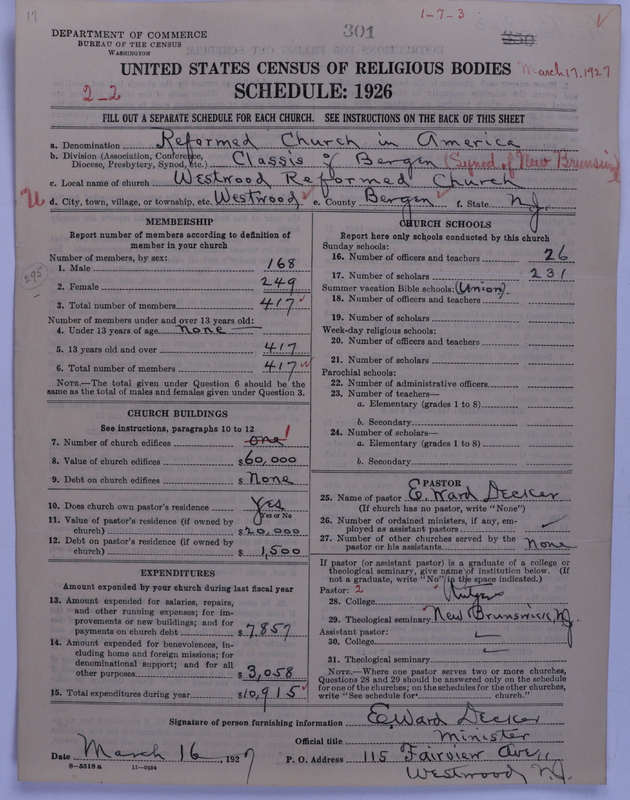 17
301
1-7-3
350
DEPARTMENT OF COMMERCE
BUREAU OF THE CENSUS
WASHINGTON
UNITED STATES CENSUS OF RELIGIOUS BODIES
March 17, 1927
2-2
SCHEDULE: 1926
FILL OUT A SEPARATE SCHEDULE FOR EACH CHURCH. SEE INSTRUCTIONS ON THE BACK OF THIS SHEET
a. Denomination Reformed Church in America
b. Division (Association, Conference, Diocese, Presbytery, Synod, etc.) Classis of Bergen (Synod of New Brunswick)
c. Local name of church Westwood Reformed Church
d. City, town, village, or township, etc. Westwood e. County Bergen f. State N.J.
MEMBERSHIP
Report number of members according to definition of
member in your church
Number of members, by sex:
1. Male 168
2. Female 249
295
3. Total number of members 417
Number of members under and over 13 years old:
4. Under 13 years of age none
5. 13 years old and over 417
6. Total number of members 417
NOTE.—The total given under Question 6 should be the
same as the total of males and females given under Question 3.
CHURCH BUILDINGS
See instructions, paragraphs 10 to 12
7. Number of church edifices one 1
8. Value of church edifices $60,000
9. Debt on church edifices $ None
10. Does church own pastor's residence Yes
Yes or No
11. Value of pastor's residence (if owned by
church) $20,000
12. Debt on pastor's residence (if owned by
church) $ 1,500
EXPENDITURES
Amount expended by your church during last fiscal year
13. Amount expended for salaries, repairs,
and other running expenses; for im-
provements or new buildings; and for
payments on church debt $7,857
14. Amount expended for benevolences, in-
cluding home and foreign missions; for
denominational support; and for all
other purposes $3,058
15. Total expenditures during year $10,915
CHURCH SCHOOLS
Report here only schools conducted by this church
Sunday schools:
16. Number of officers and teachers 26
17. Number of scholars 231
Summer vacation Bible schools: (Union)
18. Number of officers and teachers
19. Number of scholars
Week-day religious schools:
20. Number of officers and teachers
21. Number of scholars
Parochial schools:
22. Number of administrative officers
23. Number of teachers—
a. Elementary (grades 1 to 8)
b. Secondary
24. Number of scholars—
a. Elementary (grades 1 to 8)
b. Secondary
PASTOR
25. Name of pastor E. Ward Decker
(If church has no pastor, write "None")
26. Number of ordained ministers, if any, em-
ployed as assistant pastors
27. Number of other churches served by the
pastor or his assistants None
If pastor (or assistant pastor) is a graduate of a college or
theological seminary, give name of institution below. (If
not a graduate, write "No" in the space indicated.)
Pastor: 2
28. College Rutgers
29. Theological seminary New Brunswick, N.J.
Assistant pastor:
30. College
31. Theological seminary
NOTE.—Where one pastor serves two or more churches,
Questions 28 and 29 should be answered only on the schedule
for one of the churches; on the schedules for the other churches,
write "See schedule for church."
Signature of person furnishing information E. Ward Decker
Official title Minister
Date March 16, 1927 P. O. Address 115 Fairview Ave.,
8-5518 a 11-9234 Westwood N.J.